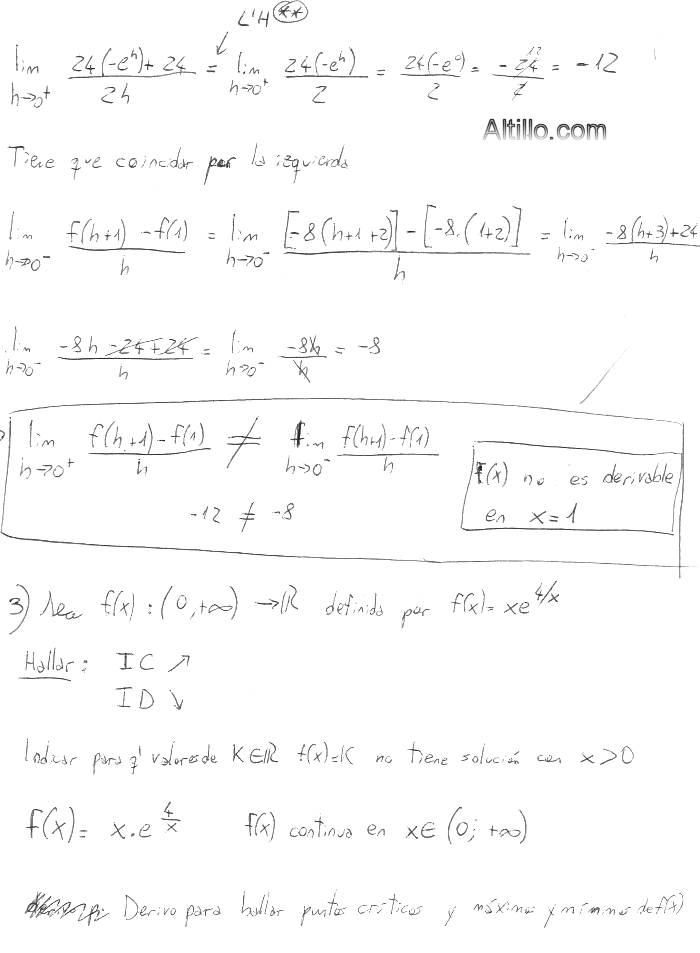 L'H (**)
lim h→0⁺ 24(-eʰ)+24 / 2h = lim h→0⁺ 24(-eʰ) / 2 = 24(-e⁰) / 2 = -24 / 2 12 = -12
Altillo.com
Tiene que coincidir por la izquierda
lim h→0⁻ f(h+1) - f(1) / h = lim h→0⁻ [-8(h+1+2)] - [-8.(1+2)] / h = lim h→0⁻ -8(h+3)+24 / h
lim h→0⁻ -8h -24+24 / h = lim h→0⁻ -8h / h = -8
lim h→0⁺ f(h+1)-f(1) / h ≠ lim h→0⁻ f(h+1)-f(1) / h
-12 ≠ -8
f(x) no es derivable
en x=1
3) Sea f(x) : (0,+∞) → ℝ definida por f(x)= xe^4/x
Hallar: IC ↗
ID ↘
Indicar para q' valores de K∈ℝ f(x)=K no tiene solución con x>0
f(x)= x.e^4/x f(x) continua en x∈ (0; +∞)
Derivo para hallar puntos críticos y máximos y mínimos de f(x)